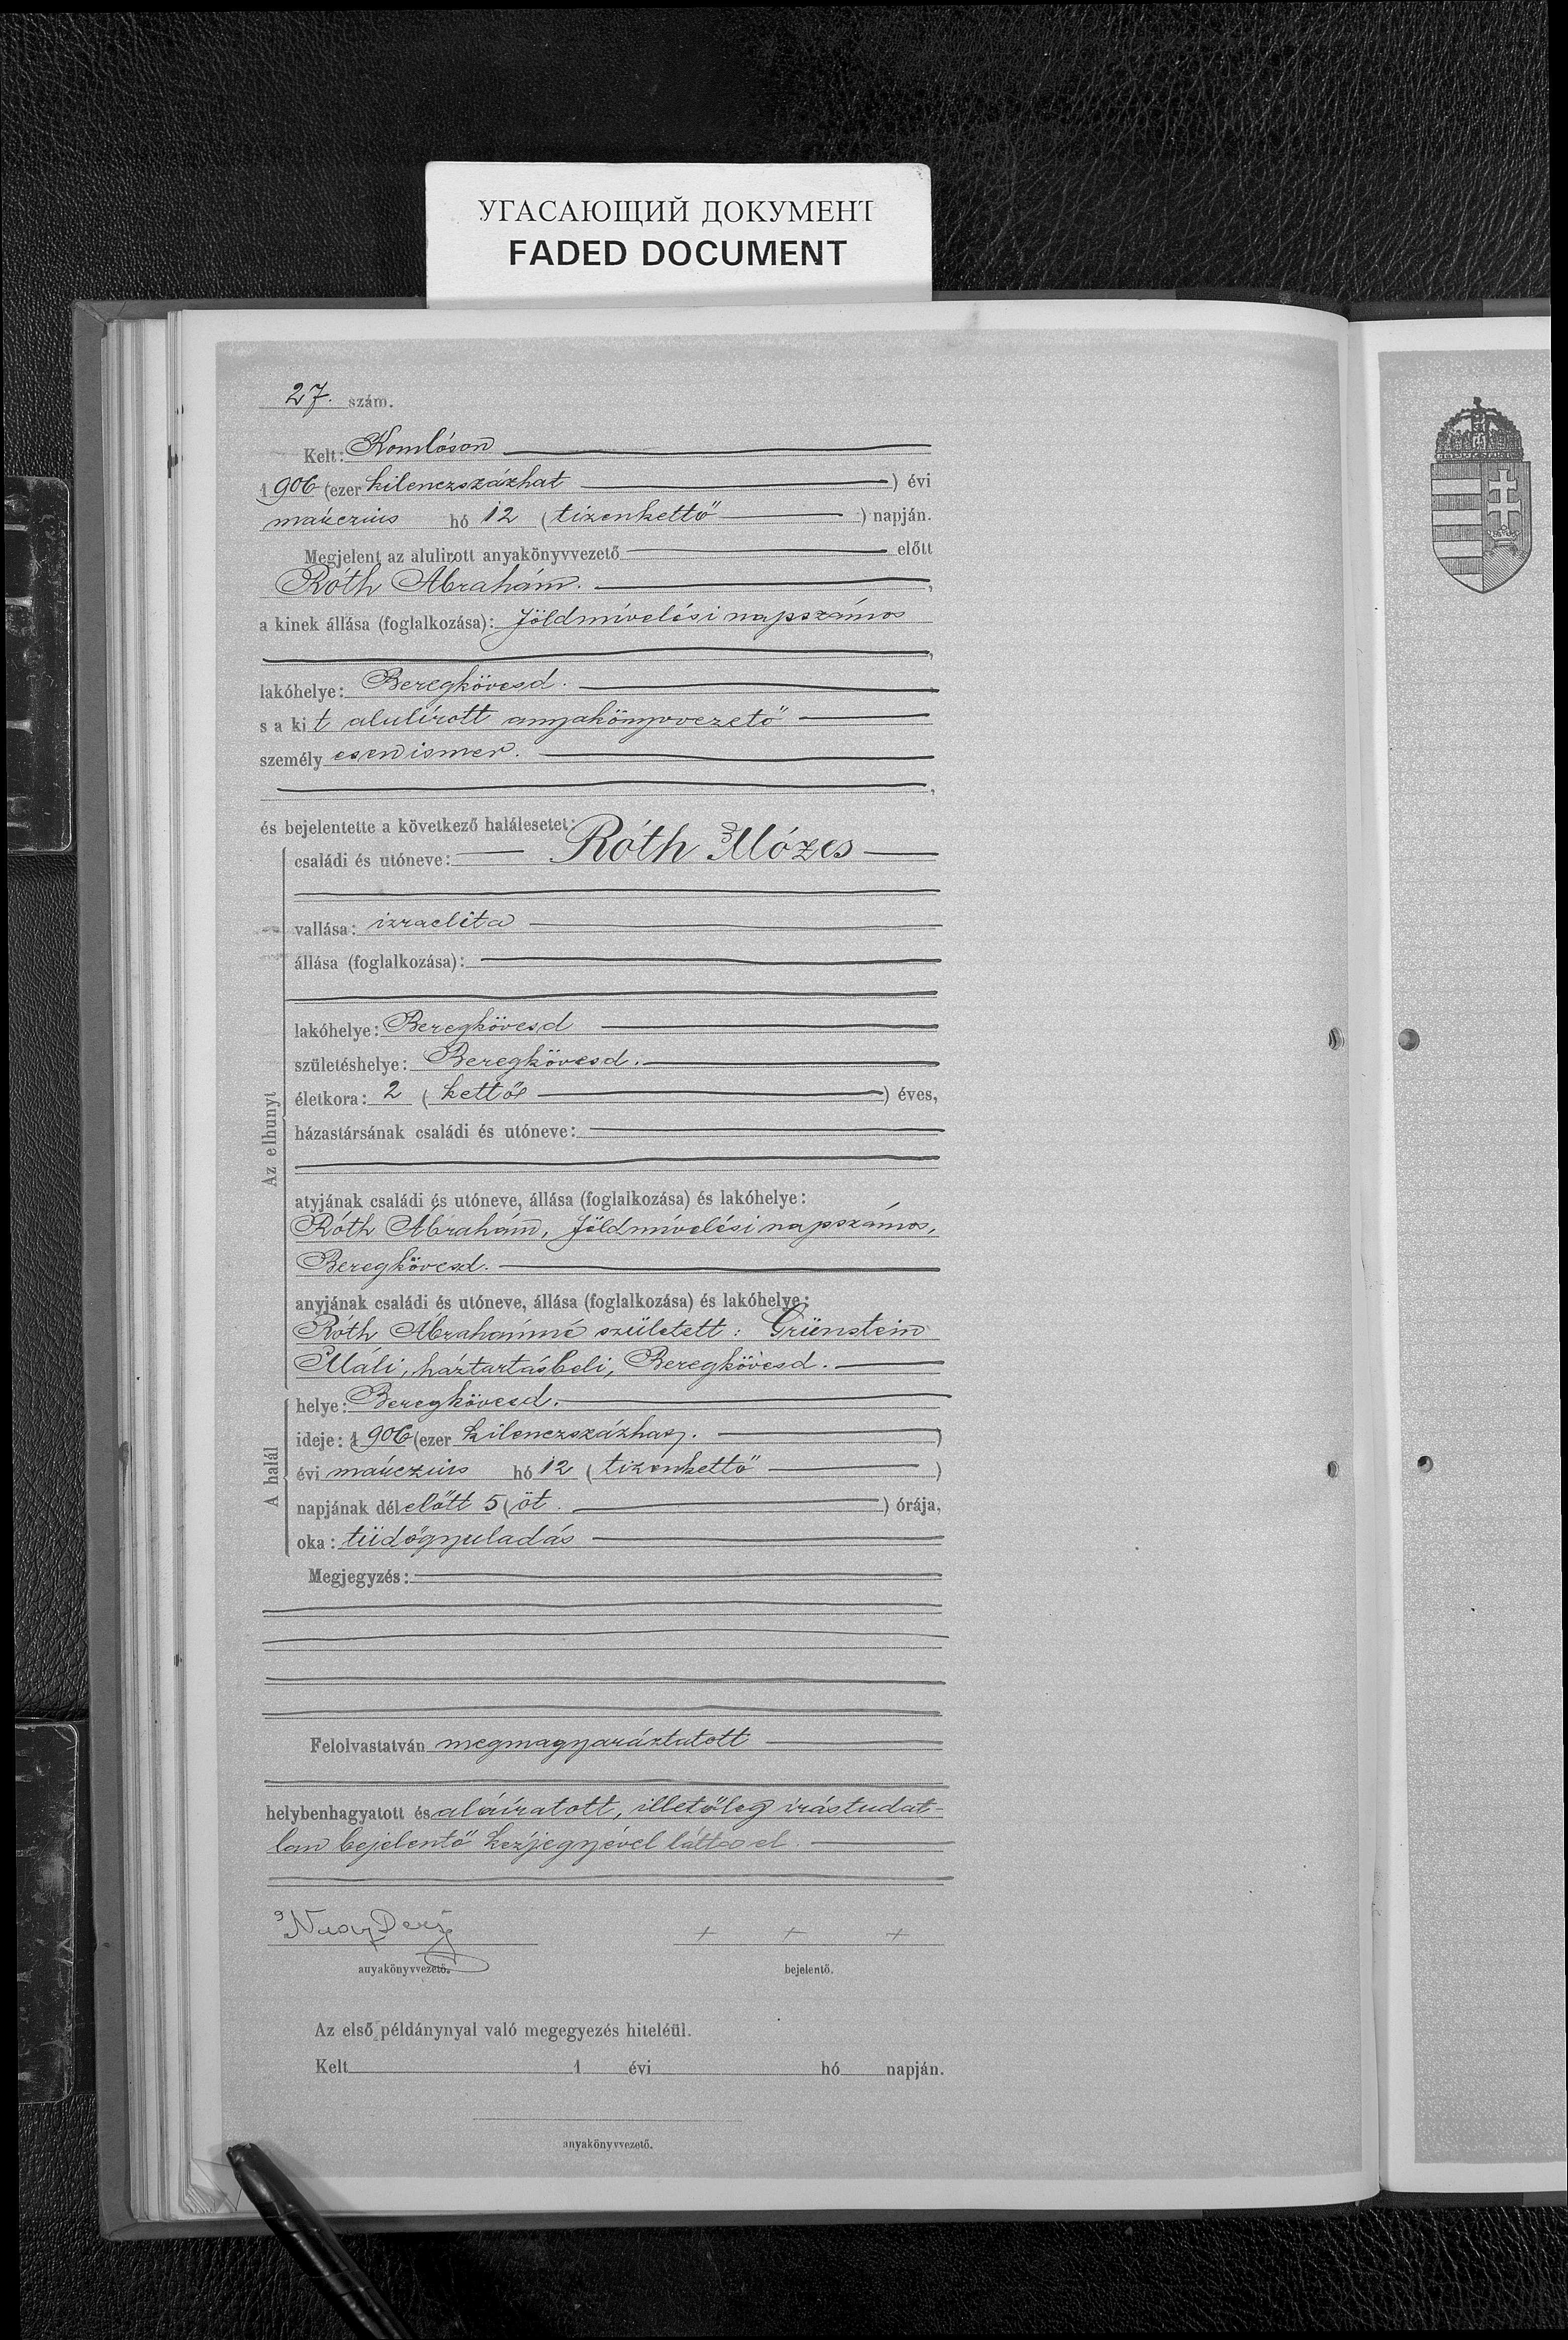 УГАСАЮЩИЙ ДОКУМЕНТ
FADED DOCUMENT
27. szám.
Kelt: Komlóson
1906 (ezer kilenczszázhat ) évi
márczius hó 12 (tizenkettő ) napján.
Megjelent az alulirott anyakönyvvezető előtt
Róth Ábrahám.,
a kinek állása (foglalkozása): földmívelési napszámos
,
lakóhelye: Beregkövesd.
s a kit alulírott anyakönyvvezető
személyesen ismer.
,
és bejelentette a következő halálesetet:
Az elhunyt
családi és utóneve: Róth Mózes
vallása: izraelita
állása (foglalkozása):
lakóhelye: Beregkövesd
születéshelye: Beregkövesd.
életkora: 2 (kettő ) éves,
házastársának családi és utóneve:
atyjának családi és utóneve, állása (foglalkozása) és lakóhelye:
Róth Ábrahám, földmívelési napszámos,
Beregkövesd.
anyjának családi és utóneve, állása (foglalkozása) és lakóhelye:
Róth Ábrahámné született: Grünstein
Máli, háztartásbeli, Beregkövesd.
A halál
helye: Beregkövesd.
ideje: 1906 (ezer kilenczszázhat. )
évi márczius hó 12 (tizenkettő )
napjának délelőtt 5 (öt. ) órája,
oka: tüdőgyuladás
Megjegyzés:
Felolvastatván megmagyaráztatott
helybenhagyatott és aláíratott, illetőleg írástudat-
lan bejelentő kézjegyével látta el.
Nagy + + +
anyakönyvvezető. bejelentő.
Az első példánynyal való megegyezés hiteléül.
Kelt 1 évi hó napján.
anyakönyvvezető.